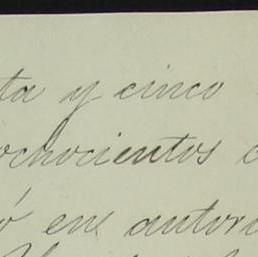 ta y cinco
ochocientos c
ó en autori